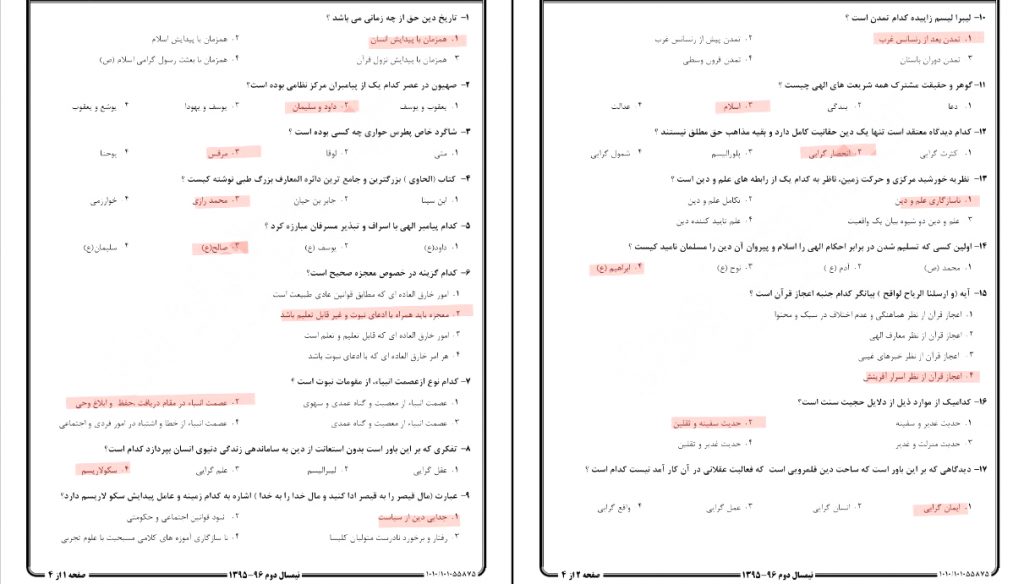 ۱- تاریخ دین حق از چه زمانی می باشد ؟
۱. همزمان با پیدایش انسان ۲. همزمان با پیدایش اسلام
۳. همزمان با پیدایش نزول قرآن ۴. همزمان با بعثت رسول گرامی اسلام (ص)
۲- صهیون در عصر کدام یک از پیامبران مرکز نظامی بوده است؟
۱. یعقوب و یوسف ۲. داود و سلیمان ۳. یوسف و یهودا ۴. یوشع و یعقوب
۳- شاگرد خاص پطرس حواری چه کسی بوده است ؟
۱. متی ۲. لوقا ۳. مرقس ۴. یوحنا
۴- کتاب (الحاوی ) بزرگترین و جامع ترین دائره المعارف بزرگ طبی نوشته کیست ؟
۱. ابن سینا ۲. جابر بن حیان ۳. محمد رازی ۴. خوارزمی
۵- کدام پیامبر الهی با اسراف و تبذیر مسرفان مبارزه کرد ؟
۱. داود(ع) ۲. یوسف (ع) ۳. صالح(ع) ۴. سلیمان(ع)
۶- کدام گزینه در خصوص معجزه صحیح است؟
۱. امور خارق العاده ای که مطابق قوانین عادی طبیعت است
۲. معجزه باید همراه با ادعای نبوت و غیر قابل تعلیم باشد
۳. امور خارق العاده ای که قابل تعلیم و تعلم است
۴. هر امر خارق العاده ای که با ادعای نبوت باشد
۷- کدام نوع ازعصمت انبیاء، از مقومات نبوت است ؟
۱. عصمت انبیاء از معصیت و گناه عمدی و سهوی ۲. عصمت انبیاء در مقام دریافت ،حفظ و ابلاغ وحی
۳. عصمت انبیاء از معصیت و گناه عمدی ۴. عصمت انبیاء از خطا و اشتباه در امور فردی و اجتماعی
۸- تفکری که بر این باور است بدون استعانت از دین به ساماندهی زندگی دنیوی انسان بپردازد کدام است؟
۱. عقل گرایی ۲. لیبرالیسم ۳. علم گرایی ۴. سکولاریسم
۹- عبارت (مال قیصر را به قیصر ادا کنید و مال خدا را به خدا ) اشاره به کدام زمینه و عامل پیدایش سکو لاریسم دارد؟
۱. جدایی دین از سیاست ۲. نبود قوانین اجتماعی و حکومتی
۳. رفتار و برخورد نادرست متولیان کلیسا ۴. نا سازگاری آموزه های کلامی مسیحیت با علوم تجربی
۱۰۱۰/۱۰۱۰۵۵۸۷۵ نیمسال دوم ۹۶-۱۳۹۵ صفحه ۱ از ۴
۱۰- لیبرا لیسم زاییده کدام تمدن است ؟
۱. تمدن بعد از رنسانس غرب ۲. تمدن پیش از رنسانس غرب
۳. تمدن دوران باستان ۴. تمدن قرون وسطی
۱۱- گوهر و حقیقت مشترک همه شریعت های الهی چیست ؟
۱. دعا ۲. بندگی ۳. اسلام ۴. عدالت
۱۲- کدام دیدگاه معتقد است تنها یک دین حقانیت کامل دارد و بقیه مذاهب حق مطلق نیستند ؟
۱. کثرت گرایی ۲. انحصار گرایی ۳. پلورالیسم ۴. شمول گرایی
۱۳- نظر به خورشید مرکزی و حرکت زمین، ناظر به کدام یک از رابطه های علم و دین است ؟
۱. ناسازگاری علم و دین ۲. تکامل علم و دین
۳. علم و دین دو شیوه بیان یک واقعیت ۴. علم تایید کننده دین
۱۴- اولین کسی که تسلیم شدن در برابر احکام الهی را اسلام و پیروان آن دین را مسلمان نامید کیست ؟
۱. محمد (ص) ۲. آدم (ع ) ۳. نوح (ع) ۴. ابراهیم (ع)
۱۵- آیه (و ارسلنا الریاح لواقح ) بیانگر کدام جنبه اعجاز قرآن است ؟
۱. اعجاز قرآن از نظر هماهنگی و عدم اختلاف در سبک و محتوا
۲. اعجاز قرآن از نظر معارف الهی
۳. اعجاز قرآن از نظر خبرهای غیبی
۴. اعجاز قرآن از نظر اسرار آفرینش
۱۶- کدامیک از موارد ذیل از دلایل حجیت سنت است؟
۱. حدیث غدیر و سفینه ۲. حدیث سفینه و ثقلین
۳. حدیث منزلت و غدیر ۴. حدیث غدیر و ثقلین
۱۷- دیدگاهی که بر این باور است که ساحت دین قلمرویی است که فعالیت عقلانی در آن کار آمد نیست کدام است ؟
۱. ایمان گرایی ۲. انسان گرایی ۳. عمل گرایی ۴. واقع گرایی
۱۰۱۰/۱۰۱۰۵۵۸۷۵ نیمسال دوم ۹۶-۱۳۹۵ صفحه ۲ از ۴